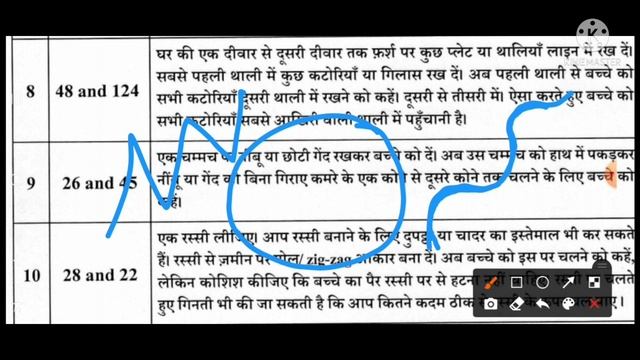 KINEMASTER
घर की एक दीवार से दूसरी दीवार तक फ़र्श पर कुछ प्लेट या थालियाँ लाइन में रख दें।
सबसे पहली थाली में कुछ कटोरियाँ या गिलास रख दें। अब पहली थाली से बच्चे को
8 48 and 124 सभी कटोरियाँ दूसरी थाली में रखने को कहें। दूसरी से तीसरी में। ऐसा करते हुए बच्चे को
सभी कटोरियाँ सबसे आखिरी वाली थाली में पहुँचानी है।
एक चम्मच पर नींबू या छोटी गेंद रखकर बच्चे को दें। अब उस चम्मच को हाथ में पकड़कर
9 26 and 45 नींबू या गेंद को बिना गिराए कमरे के एक कोने से दूसरे कोने तक चलने के लिए बच्चे को
कहें।
एक रस्सी लीजिए। आप रस्सी बनाने के लिए दुपट्टा या चादर का इस्तेमाल भी कर सकते
हैं। रस्सी से ज़मीन पर गोल/ zig-zag आकार बना दें। अब बच्चे को इस पर चलने को कहें,
10 28 and 22 लेकिन कोशिश कीजिए कि बच्चे का पैर रस्सी पर से हटना नहीं चाहिए। रस्सी पर चलते
हुए गिनती भी की जा सकती है कि आप कितने कदम ठीक से